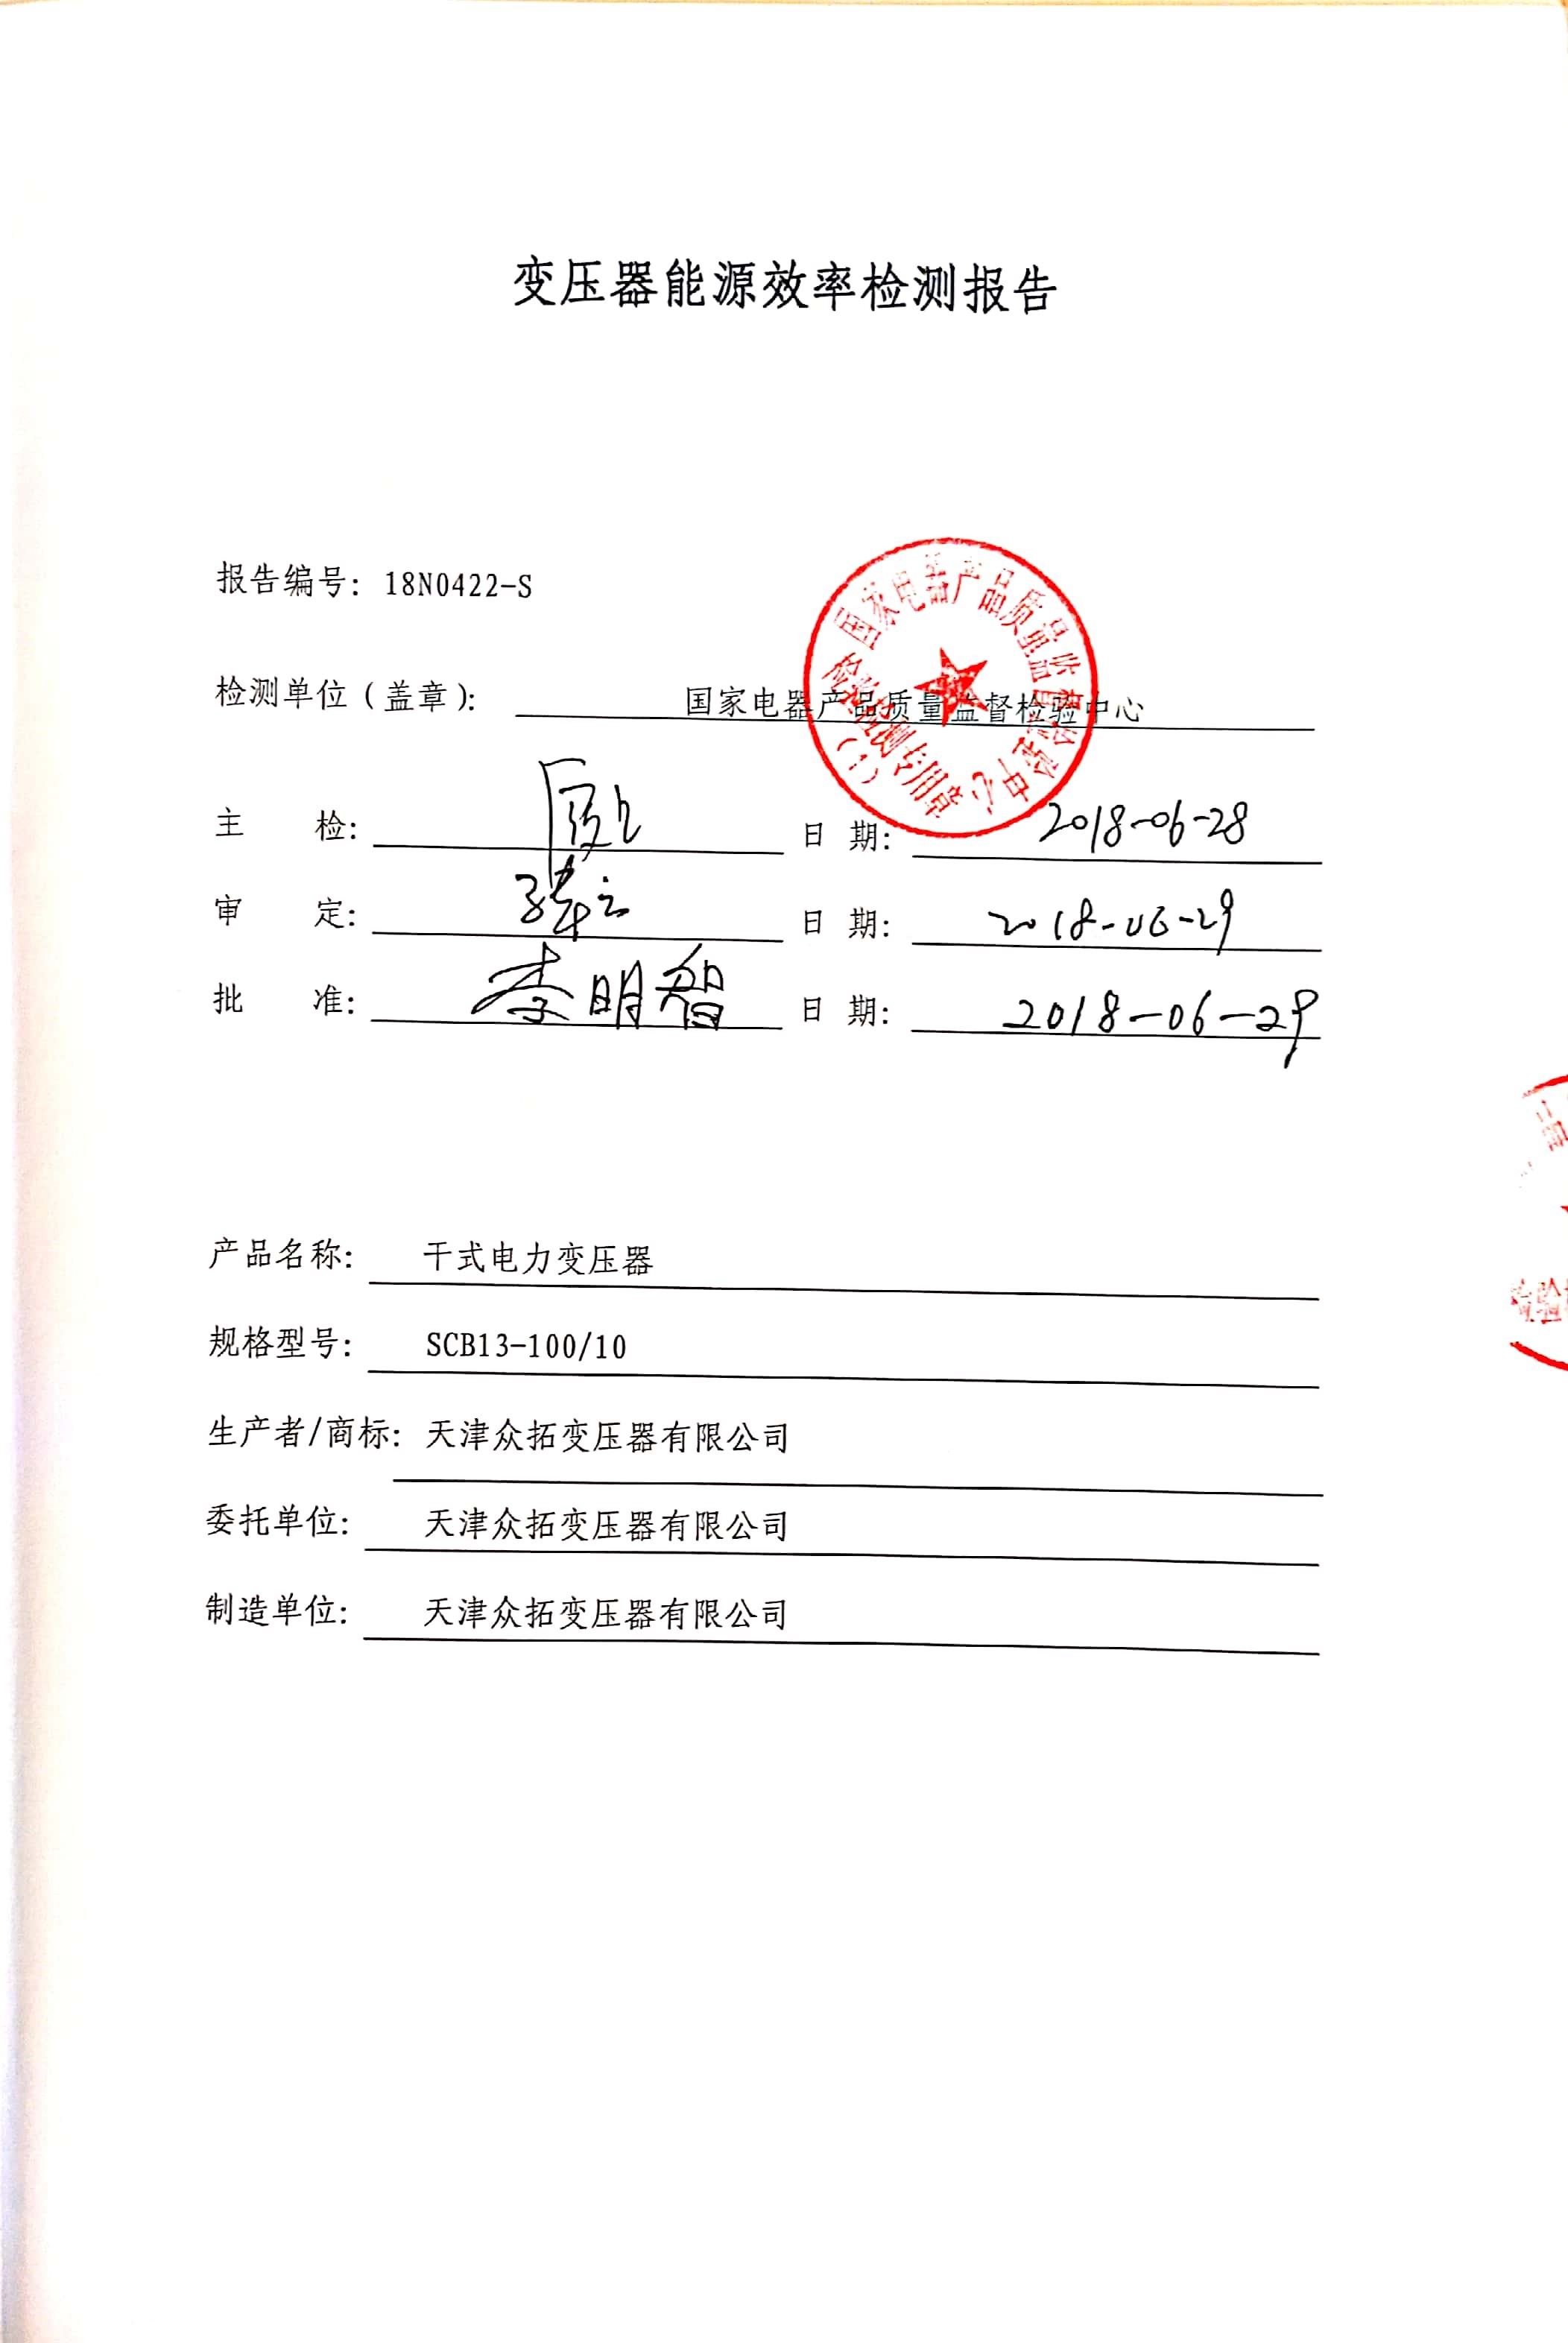 变压器能源效率检测报告
报告编号: 18N0422-S
检测单位(盖章): 国家电器产品质量监督检验中心
国家电器产品质量监督检验中心
检验检测专用章
(1)
主 检: 日 期: 2018-06-28
审 定: 日 期: 2018-06-29
批 准: 李明智 日 期: 2018-06-29
产品名称: 干式电力变压器
规格型号: SCB13-100/10
生产者/商标: 天津众拓变压器有限公司
委托单位: 天津众拓变压器有限公司
制造单位: 天津众拓变压器有限公司
检验